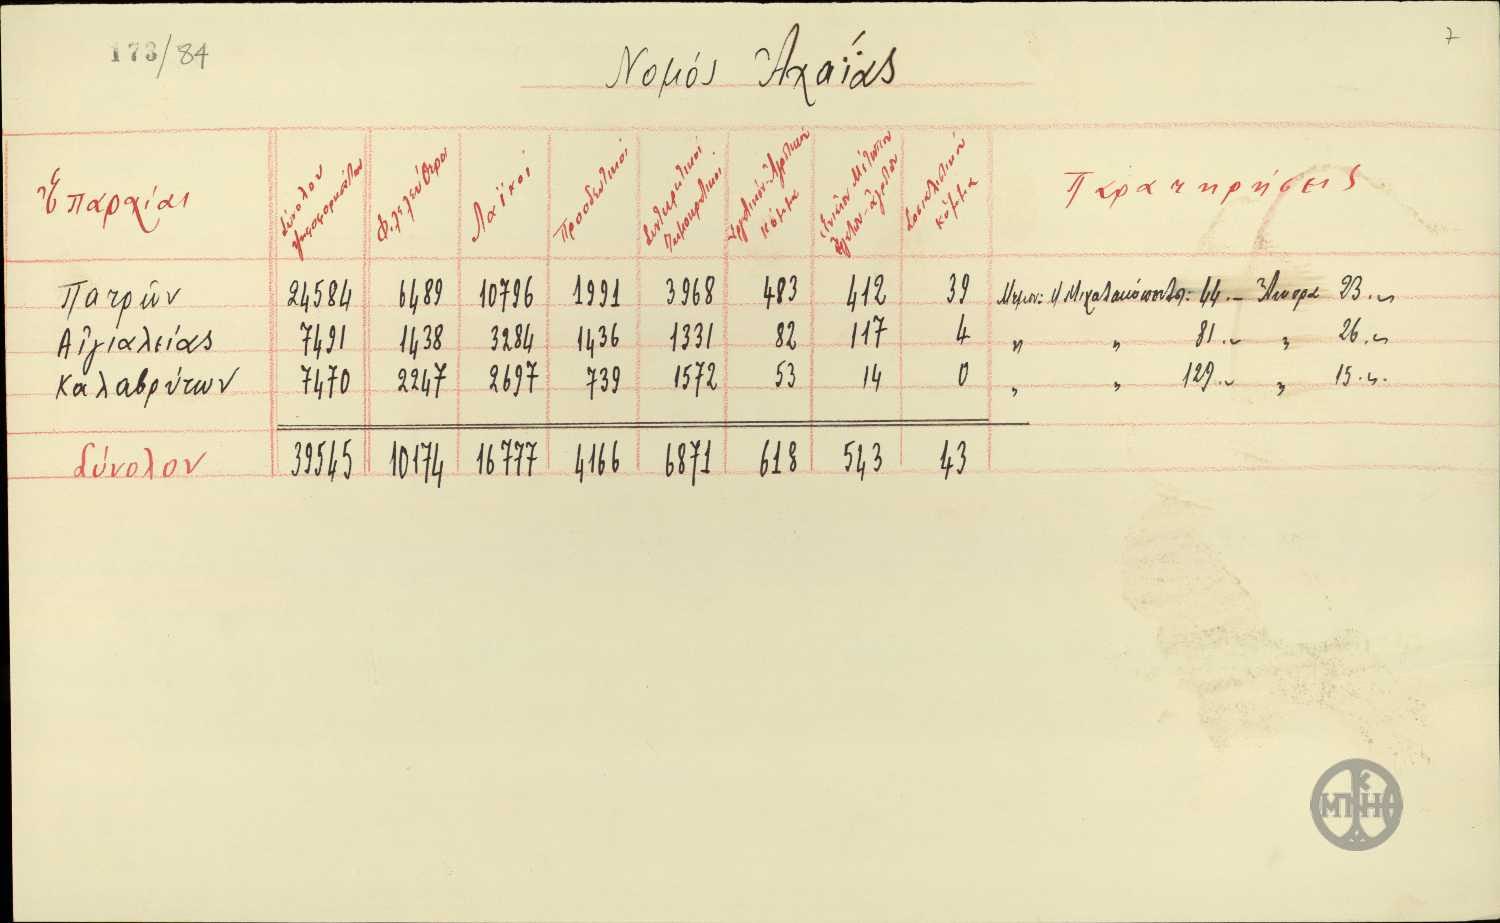 173/84
7
Νομός Ἀχαΐας
Ἐπαρχίαι Σύνολον ψηφοφορησάντων Φιλελεύθεροι Λαϊκοί Προοδευτικοί Συντηρητικοί Δημοκρατικοί Ἐργατικόν-Ἀγροτικόν κόμμα Ἑνιαῖον Μέτωπον Ἐργατῶν-Ἀγροτῶν Σοσιαλιστικόν κόμμα Παρατηρήσεις
Πατρῶν 24584 6489 10796 1991 3968 483 412 39 Μεμον: Μιχαλακόπουλ: 44.- Ἄκυρα 23.-
Αἰγιαλείας 7491 1438 3284 1436 1331 82 117 4 " " 81.- " 26.-
Καλαβρύτων 7470 2247 2697 739 1572 53 14 0 " " 129.- " 15.-
Σύνολον 39545 10174 16777 4166 6871 618 543 43
ΜΠΚΗ